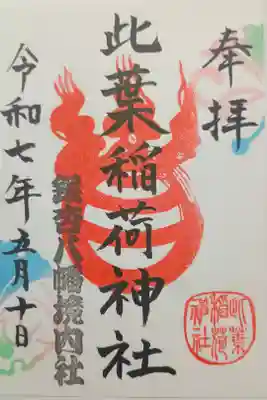 奉拝
此葉稲荷神社
鎮守八幡境内社
令和七年五月十日
此葉
稲荷
神社